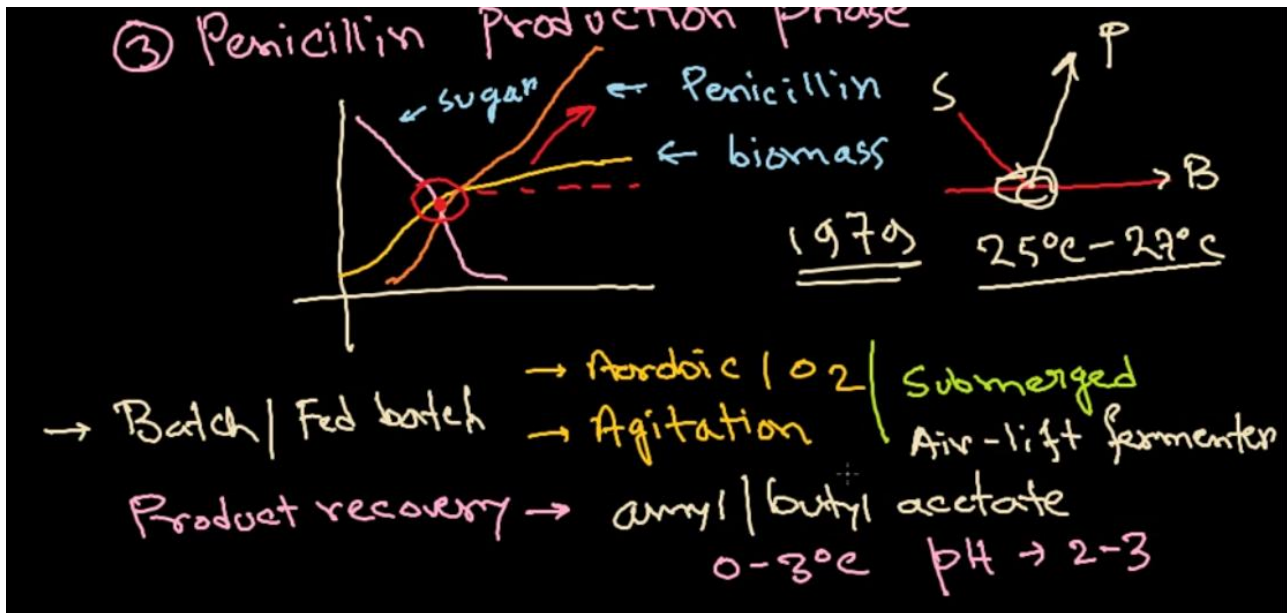 ③ Penicillin Production phase
← sugar
← Penicillin
← biomass
S
P
B
1970s 25°C-27°C
→ Batch | Fed batch
→ Aordoic | O2 | Submerged
→ Agitation Air-lift fermenter
Product recovery → amyl | butyl acetate
0-3°C pH → 2-3